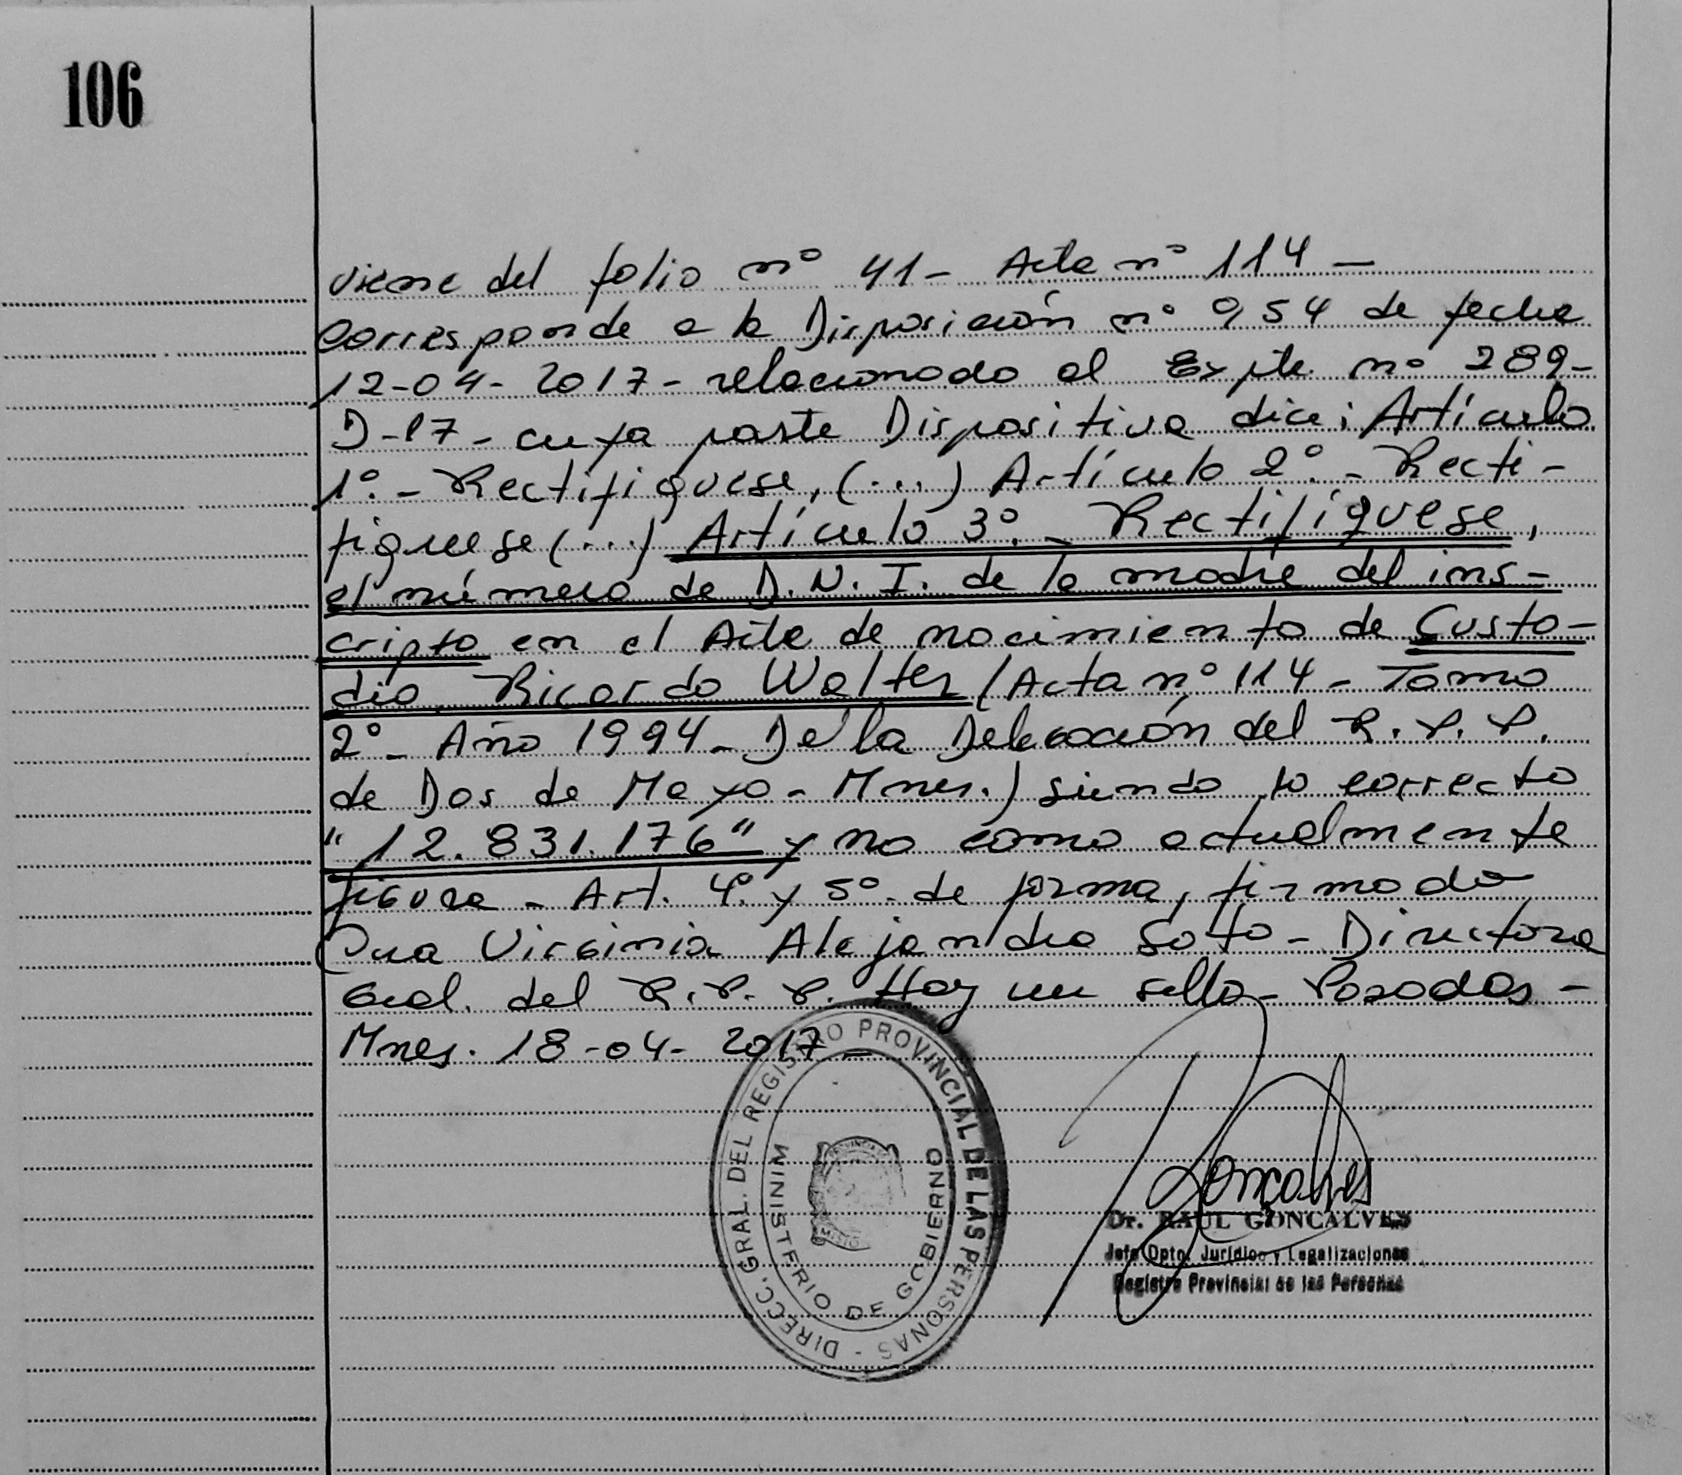 106
viene del folio nº 41- Acta nº 114 -
corresponde a la Disposición nº 954 de fecha
12-04-2017- relacionado al Expte. nº 289-
D-17- cuya parte Dispositiva dice: Artículo
1º.- Rectifíquese, (...) Artículo 2º.- Recti-
fíquese (...) Artículo 3º.- Rectifíquese,
el número de D.N.I. de la madre del ins-
cripto en el Acta de nacimiento de Custo-
dio, Ricardo Walter (Acta nº 114 - Tomo
2º- Año 1994- De la Delegación del R.P.P.
de Dos de Mayo - Mnes.) siendo lo correcto
"12.831.176" y no como actualmente
figura - Art. 4º y 5º. de forma, firmado
Dra Virginia Alejandra Soto - Directora
Gral. del R.P.P. Hay un sello - Posadas -
Mnes. 18-04-2017 -
DIRECC. GRAL. DEL REGISTRO PROVINCIAL DE LAS PERSONAS -
MINISTERIO DE GOBIERNO
Gonçalves
Dr. RAUL GONCALVES
Jefe Dpto. Jurídico y Legalizaciones
Registro Provincial de las Personas